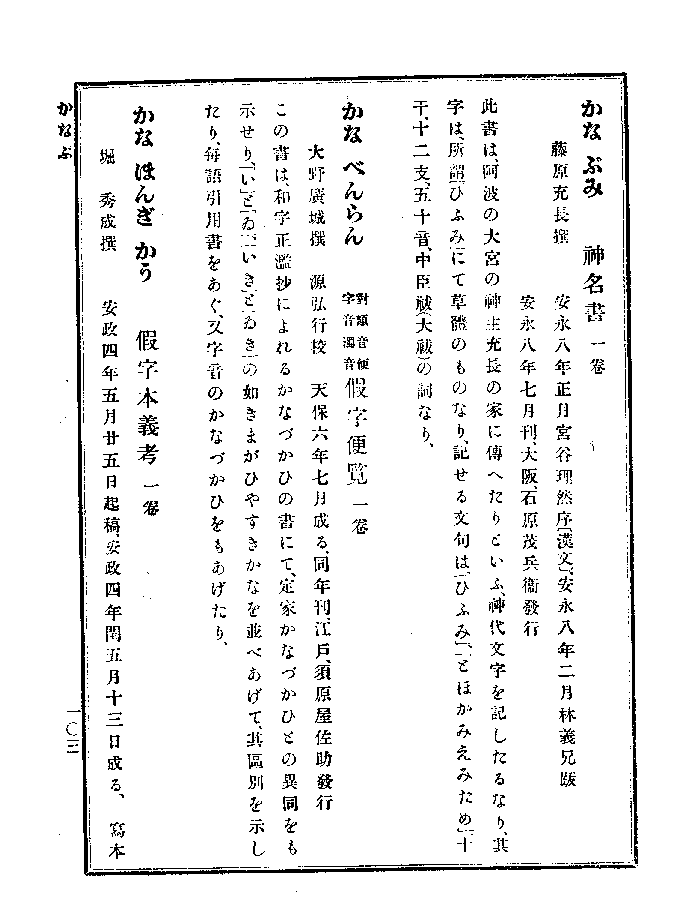 かな ぶみ 神名書 一卷
藤原充長撰 安永八年正月宮谷理然序(漢文)、安永八年二月林義兄跋
安永八年七月刊、大阪、石原茂兵衞發行
此書は、阿波の大宮の神主充長の家に傳へたりといふ、神代文字を記したるなり、其
字は、所謂「ひふみ」にて草體のものなり、記せる文句は、「ひふみ」、「とほかみえみため」、十
干、十二支、五十音、中臣祓(大祓)の詞なり、
かな べんらん 對類音便字音濁音 假字便覽 一卷
大野廣城撰 源弘行校 天保六年七月成る、同年刊、江戶、須原屋佐助發行
この書は、和字正濫抄によれるかなづかひの書にて、定家かなづかひとの異同をも
示せり、「い」と「ゐ」、「いき」と「ゐき」の如きまがひやすきかなを並べあげて、其區別を示し
たり、每語引用書をあぐ、又字音のかなづかひをもあげたり、
かな ほんぎ かう 假字本義考 一卷
堀 秀成撰 安政四年五月廿五日起稿、安政四年閏五月十三日成る、 寫本
かなぶ
一〇三